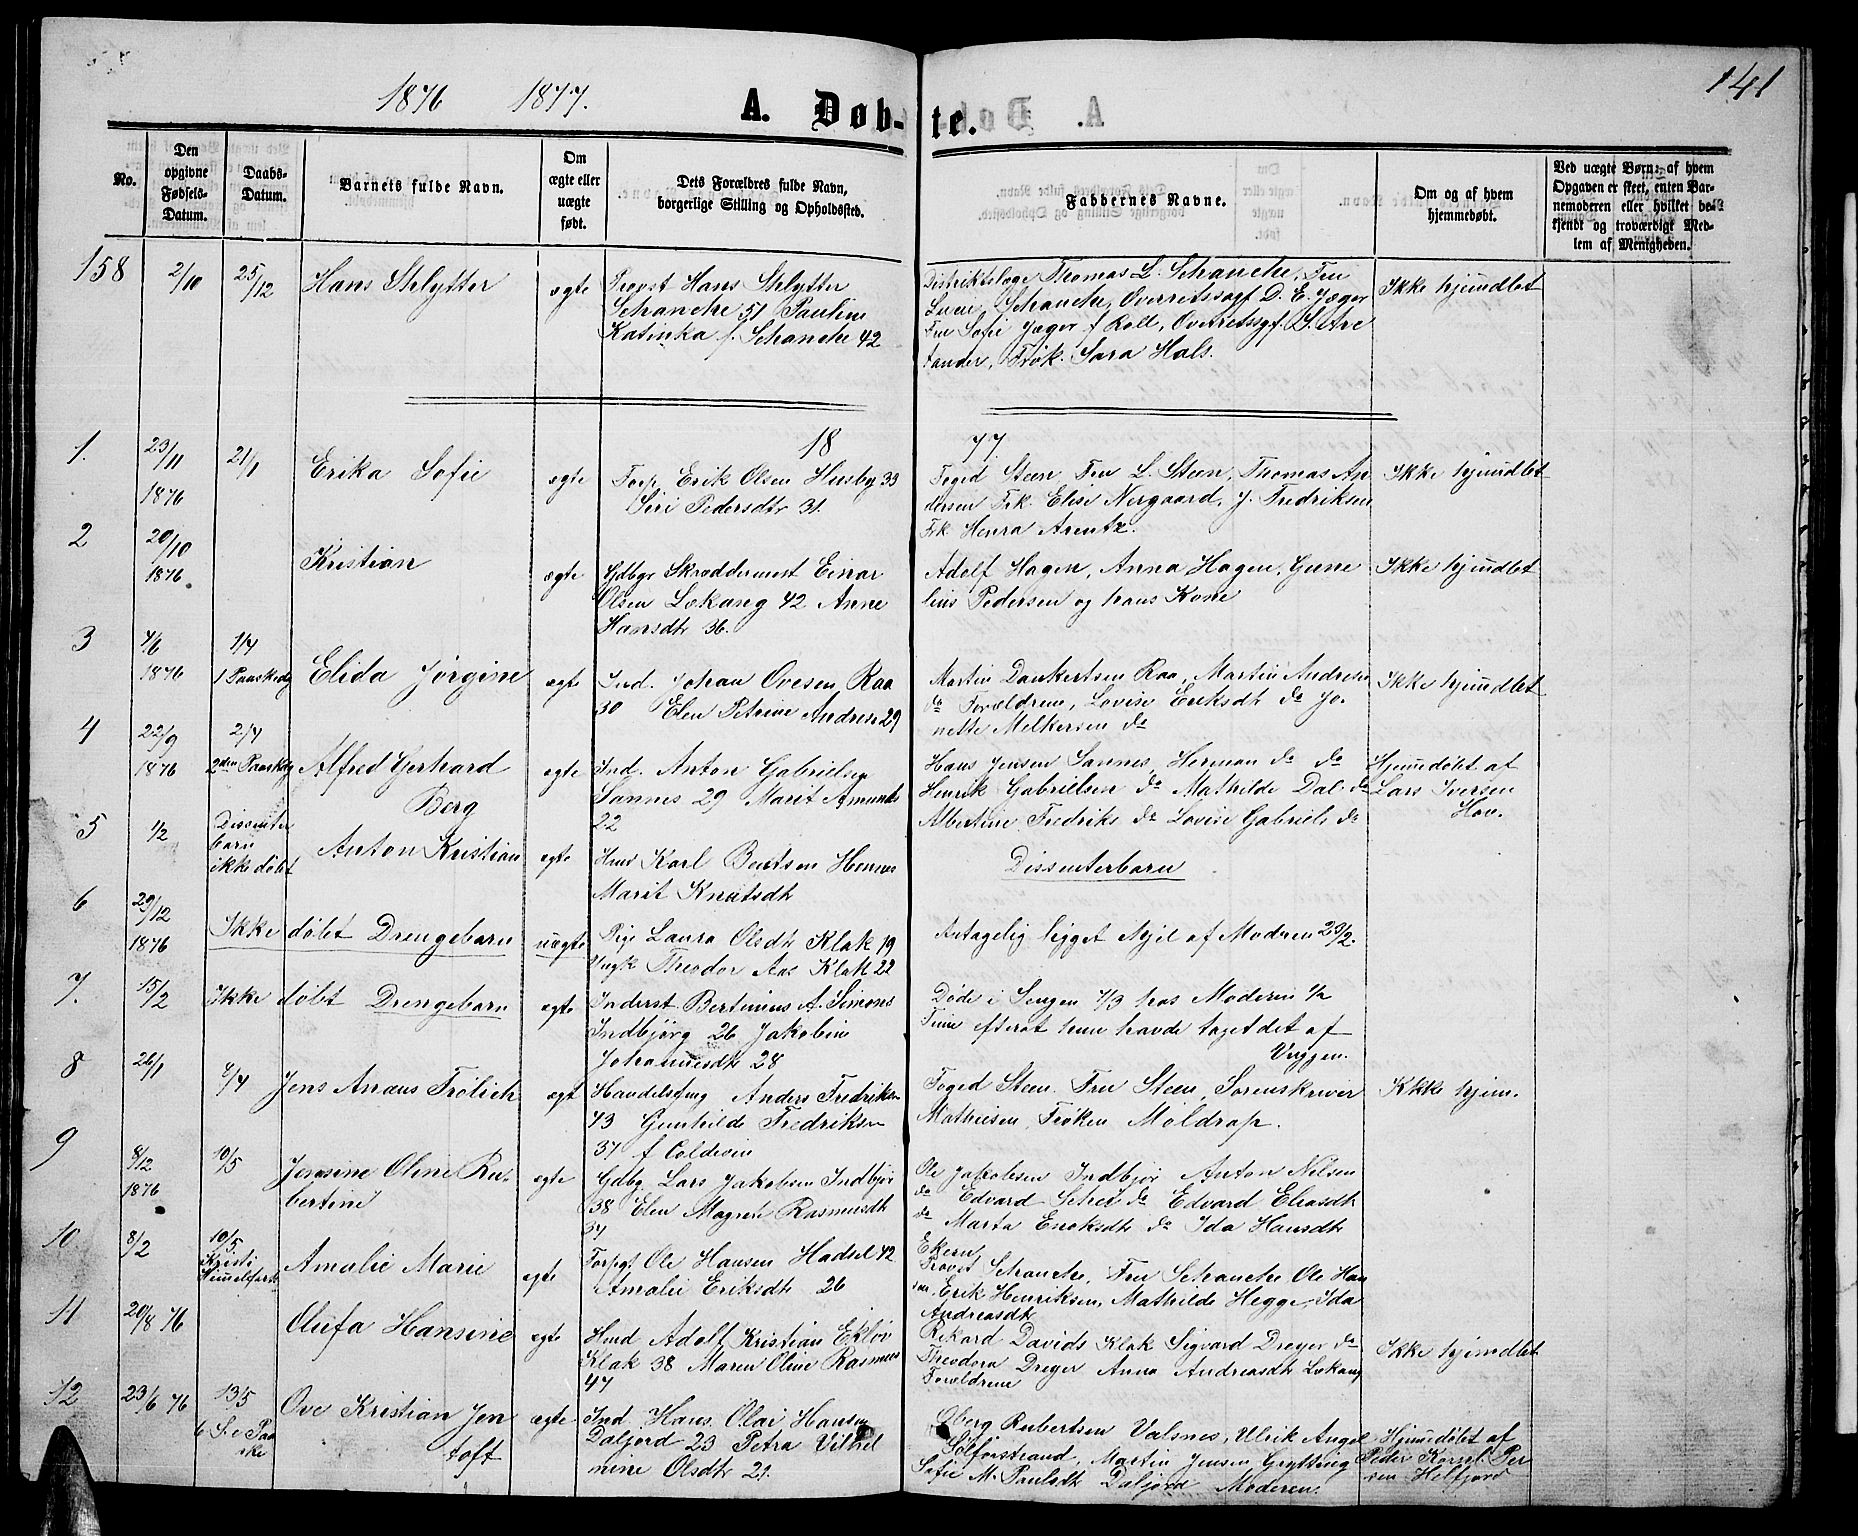 1876 1877.
A. Døb-te.
141
No.
Den opgivne Fødsels-Datum.
Daabs-Datum.
Barnets fulde Navn.
Om ægte eller uægte født.
Dets Forældres fulde Navn, borgerlige Stilling og Opholdssted.
Faddernes Navne.
Om og af hvem hjemmedøbt.
Ved uægte Børn: af hvem Opgaven er skeet, enten Barnemoderen eller hvilket bekjendt og troværdigt Medlem af Menigheden.
158
2/10
25/12
Hans Shlytter
ægte
Provst Hans Shlytter
Schanche 51 Pauline
Katinka f. Schanche 42
Distriktslæge Thomas L. Schanche, Fru
Schanche, Overretssagf D. E. Jæger
Fru Sofie Jæger f Roll, Overretssgf.
Frøk. Sara Hals.
Ikke hjemdbt
1877.
1.
23/11
1876
21/1
Erika Sofie
ægte
Forp Erik Olsen Husby 33
Siri Pedersdtr 31.
Foged Steen Fru L. Steen, Thomas An
dersen Frk. Elise Nergaard, J. Fredriksen
Frk Henra Arentz.
Ikke hjemdbt
2
20/10
1876
Kristian
ægte
Gdbgr Skræddermest Einar
Olsen Løkang 42 Anne
Hansdtr 36.
Adolf Hagen, Anna Hagen, Gune
lius Pedersen og hans Kone
Ikke hjemdbt
3
4/6
1876
1/4
1 Paaskedg
Elida Jørgine
ægte
Ind. Johan Ovesen Raa
30 Elen Petrine Andrea 29
Martin Dankertsen Raa, Martin Andresen
do Forældrene, Lovise Eriksdtr do Jo-
nette Melkersen do
Ikke hjemdbt
4
22/9
1876
2/4
2den Paaskdg
Alfred Gerhard
Berg
ægte
Ind. Anton Gabrielsen
Sannes 29 Marit Amunds
22
Hans Jensen Sannes, Herman do do
Henrik Gabrielsen do Mathilde Dal. do
Albertine Fredriks do Lovise Gabriels do
Hjemedøbt af
Lars Iversen
Hov.
5
1/2
Dissenter
barn
ikke døbt
Anton Kristian
ægte
Hmd Karl Bentsen Hennes
Marit Knutsdtr
Dissenterbarn
6
29/12
1876
Ikke døbt Drengebarn
uægte
Pige Laura Olsdtr Klak 19
Ungk Theodor Aas Klak 22
Antagelig ligget ihjel af Modren 23/2.
7.
15/2
Ikke døbt Drengebarn
ægte
Inderst Bertinius A. Simons
Indbjørg 26 Jakobine
Johannesdtr 28
Døde i Sengen 7/3 hos Moderen 1/2
Time efterat hun havde taget det af
Vuggen.
8
26/1
8/4
Jens Anæus Frölich
ægt
Handelsfmg Anders Fredriksen
43 Gunhilde Fredriksen
37 f Coldevin
Foged Steen Fru Steen, Sorenskriver
Mathiesen, Frøken Moldrap.
Ikke hjem.
9
8/12
1876
10/5
Jensine Oline Ru-
bertine
ægte
Gdbg Lars Jakobsen Indbjør
38 Elen Magrete Rasmusdtr
37
Ole Jakobsen Indbjør Anton Nilsen
do Edvard Schei do Edvard Eliasdtr
do Marta Enoksdtr do Ida Hansdtr
Ekern
10
8/2
10/5.
Kristi
Himelfart
Amalie Marie
ægte
Forpgt Ole Hansen Hadsel 42
Amalie Eriksdtr 26
Provst Schanche, Fru Schanche Ole Han
sen, Erik Henriksen, Mathilde Hegge, Ida
Andreasdtr
11
20/8 76
Olufa Hansine
ægte
Hmd Adolf Kristian Ekløv
Klak 38 Maren Oline Rasmus
47
Rikard Davids Klak Sigvard Dreyer do
Theodora Dreyer Anna Andreasdtr Løkang
Forældrene
Ikke hjemdbt
12
23/6 76
13/5
6 S. e Paa
ske
Ove Kristian Jen
toft
ægte
Ind Hans Olai Hansen
Daljord 23 Petra Vilhel
mine Olsdtr 21.
Oberg Rubertsen Valsnes, Ulrik Angel
Sølfårstrand, Martin Jensen Grytting
Sofie M. Paulsdtr Daljord Moderen.
Hjemedøbt af
Peder Kornel. Per
sen Helfjord